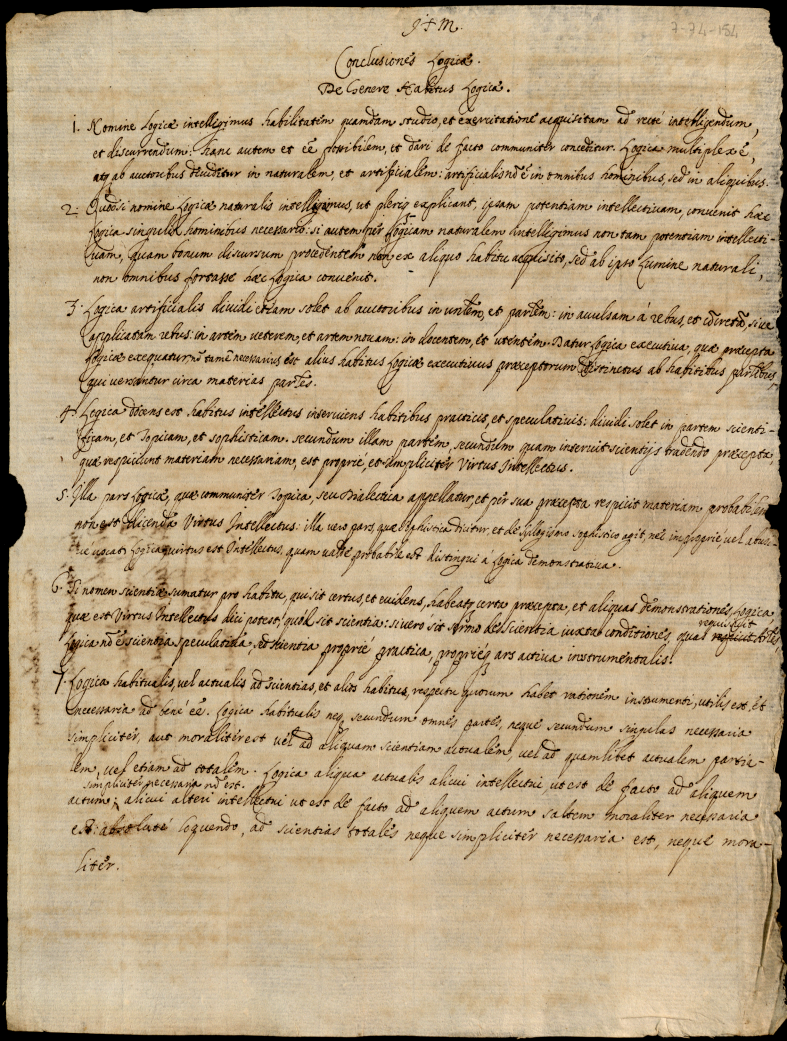 J + M.
7-74-154
Conclusiones Logicæ.
De Genere Habitus Logicæ.
1. Nomine Logicæ intelligimus habilitatem quamdam studio, et exercitatione acquisitam ad recté intelligendum,
et discurrendum: hanc autem et éé possibilem, et dari de facto communiter conceditur. Logica multiplex é,
atq; ab auctoribus dividitur in naturalem, et artificialem: artificialis nó é in omnibus hominibus, sed in aliquibus.
2. Quod si nomine Logicæ naturalis intelligimus, ut pleriq; explicant, ipsam potentiam intellectiuam, convenit hæc
Logica singulis hominibus necessario: si autem per Logicam naturalem intelligimus non tam potentiam intellecti-
uam, quam bonum discursum procedentem non ex aliquo habitu acquisito, sed ab ipso Lumine naturali,
non omnibus fortasse hæc Logica convenit.
3. Logica artificialis dividi etiam solet ab auctoribus in untem, et partem: in avulsam á rebus, et cócretã, siue
applicatam rebus: in artem veterem, et artem novam: in docentem, et utentem. Datur Logica executiua, quæ præcepta
Logicæ exequatur: nó tamé necessarius est alius habitus Logicæ executiuus præceptorum distinctus ab habitibus
qui versantur circa materias partes.
4. Logica docens est habitus intellectus inserviens habitibus practicis, et speculativis: dividi solet in partem scienti-
ficam, et Topicam, et sophisticam. secundum illam partem, secundum quam inservit scientijs tradendo præcepta,
quæ respiciunt materiam necessariam, est proprié, et simpliciter Virtus Intellectus.
5. Illa pars Logicæ, quæ communiter Topica, seu Dialectica appellatur, et per sua præcepta respicit materiam probabilem
non est dicenda Virtus Intellectus: illa vero pars, quæ Sophistica dicitur, et de syllogismo sophistico agit, nec improprié, vel abusi-
vé vocari Logica virtus est Intellectus, quam valde probabile est distingui a Logica demonstrativa.
6. Si nomen scientiæ sumatur pro habitu, qui sit certus, et evidens, habeatq; certa præcepta, et aliquas demonstrationes, Logica
quæ est Virtus Intellectus dici potest, quód sit scientia: si vero sit sermo de scientia iuxta conditiones, quas requirit
Logica nó é scientia speculativa, sed scientia proprié practica, propriéq; ars activa instrumentalis.
7. Logica habitualis, vel actualis ad scientias, et alios habitus, respectu quorum habet rationem instrumenti, utilis est, et
necessaria ad bené éé. Logica habitualis neq; secundum omnes partes, neque secundum singulas necessaria
simpliciter, aut moraliter est vel ad aliquam scientiam actualem, vel ad quamlibet actualem partia-
lem, vel etiam ad totalem. Logica aliqua actualis alicui intellectui ut est de facto ad aliquem
simpliciter necessaria nó est.
actum; alicui alteri intellectui ut est de facto ad aliquem actum saltem moraliter necessaria
est: absoluté loquendo, ad scientias totales neque simpliciter necessaria est, neque mora-
liter.